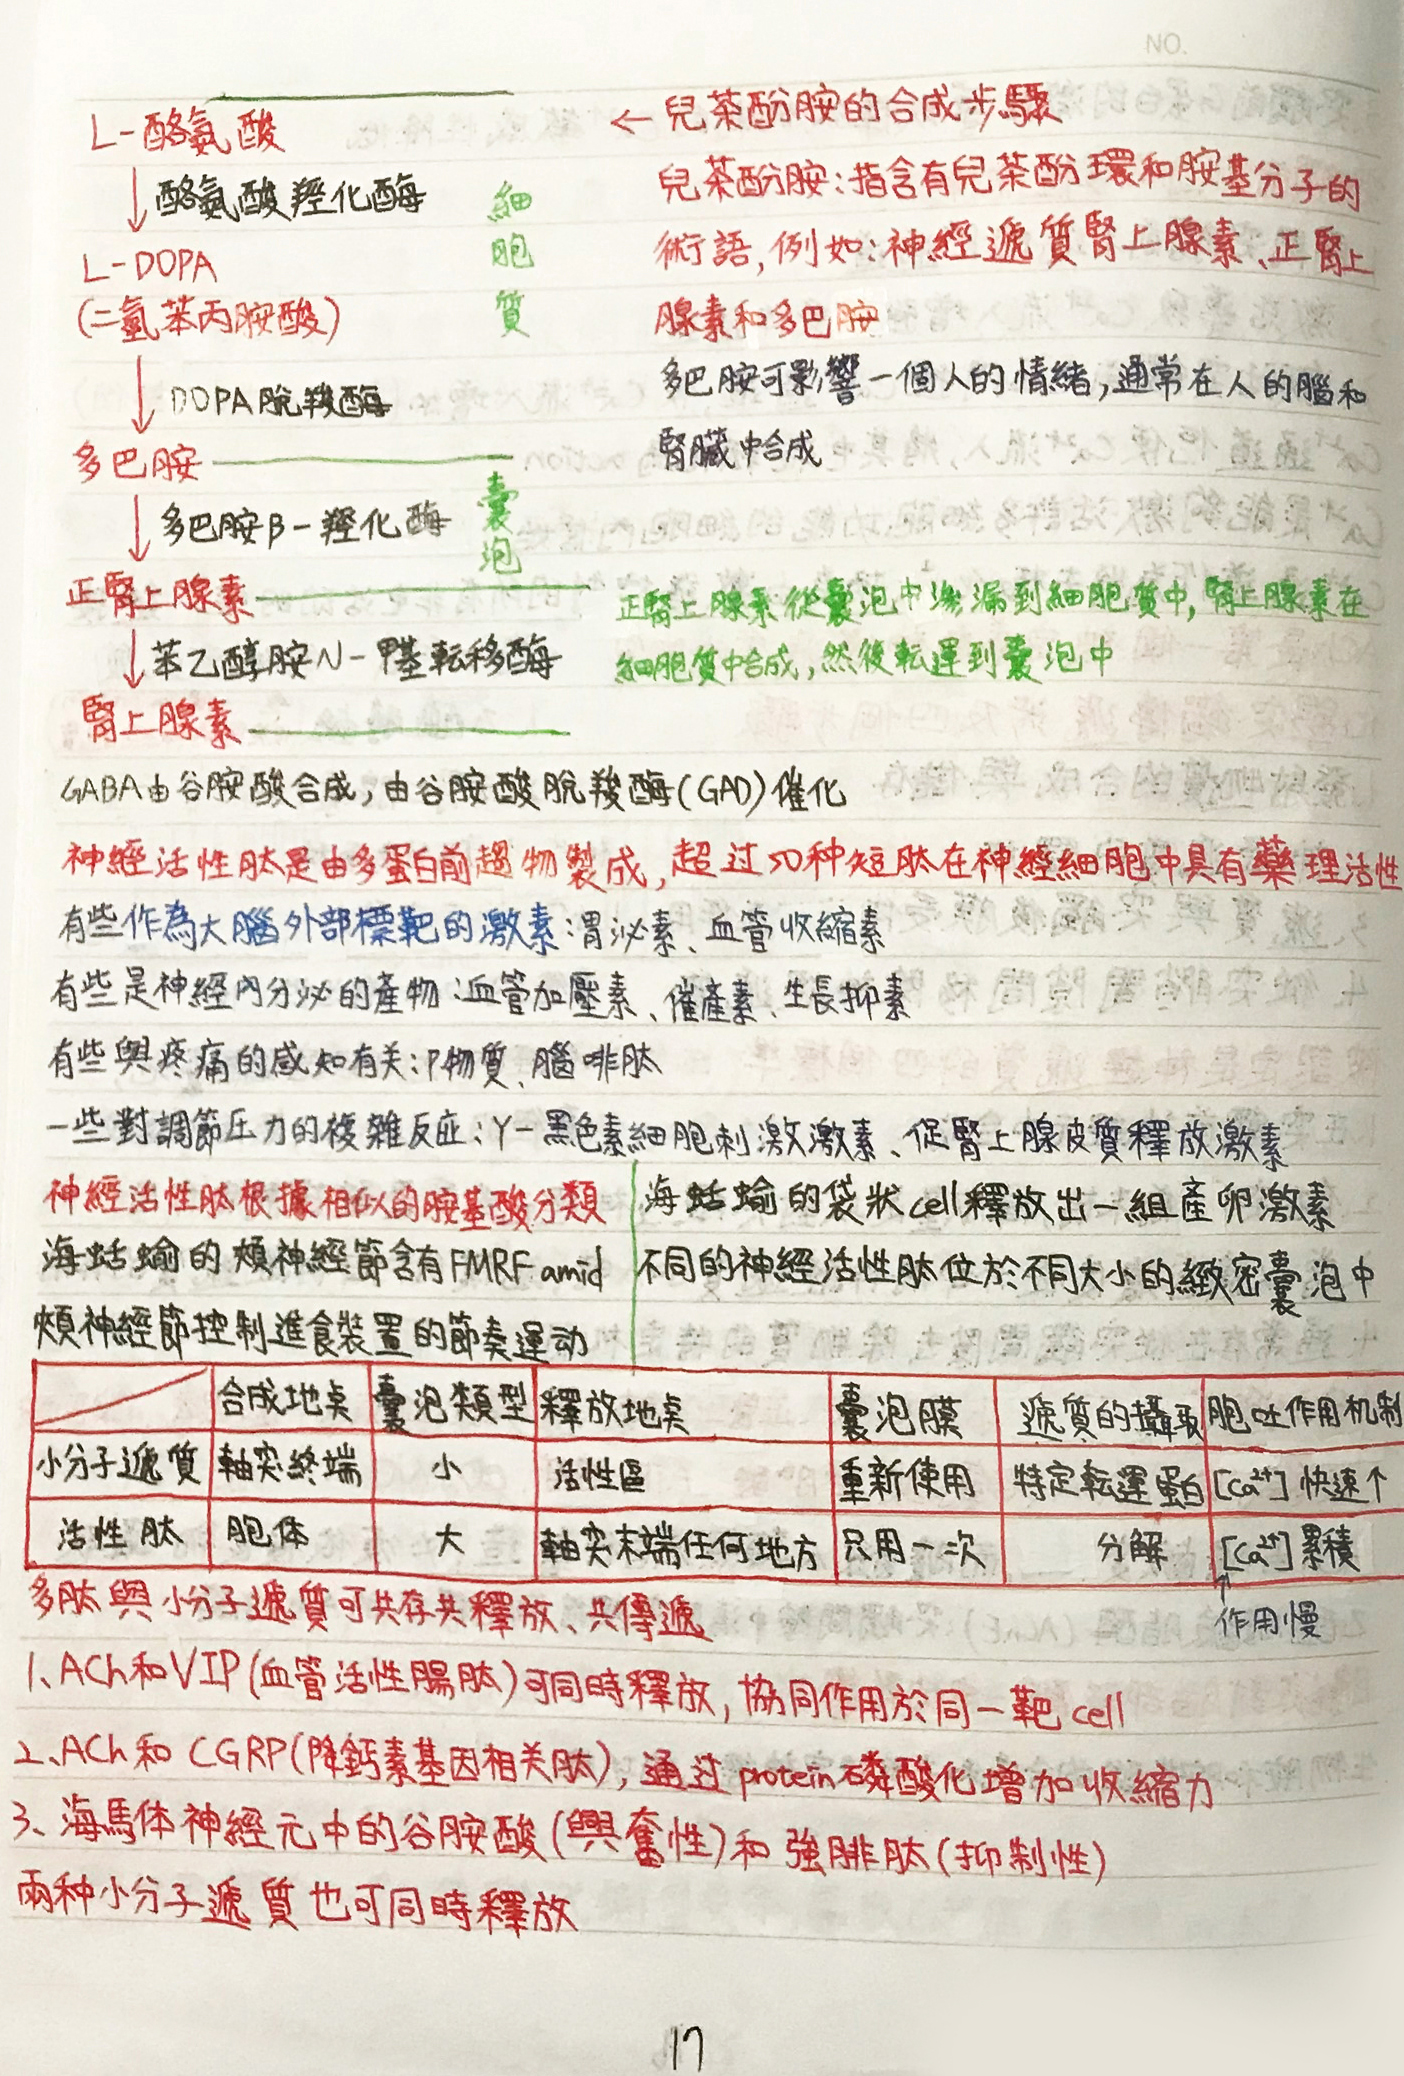 NO.
L-酪氨酸
酪氨酸羥化酶
L-DOPA
(二氫苯丙胺酸)
DOPA脫羧酶
多巴胺
多巴胺β-羥化酶
正腎上腺素
苯乙醇胺N-甲基転移酶
腎上腺素
細胞質
囊泡
←兒茶酚胺的合成步驟
兒茶酚胺:指含有兒茶酚環和胺基分子的
術語,例如:神經遞質腎上腺素、正腎上
腺素和多巴胺
多巴胺可影響一個人的情緒,通常在人的腦和
腎臟中合成
正腎上腺素從囊泡中洩漏到細胞質中,腎上腺素在
細胞質中合成,然後転運到囊泡中
GABA由谷胺酸合成,由谷胺酸脫羧酶(GAD)催化
神經活性肽是由多蛋白前趨物製成,超过50种短肽在神經細胞中具有藥理活性
有些作為大腦外部標靶的激素:胃泌素、血管收縮素
有些是神經內分泌的產物:血管加壓素、催產素、生長抑素
有些與疼痛的感知有关:P物質、腦啡肽
一些對調節压力的複雜反应:γ-黑色素細胞刺激激素、促腎上腺皮質釋放激素
神經活性肽根據相似的胺基酸分類
海蛞蝓的頰神經節含有FMRF amid
頰神經節控制進食裝置的節奏運动
海蛞蝓的袋狀cell釋放出一組產卵激素
不同的神經活性肽位於不同大小的緻密囊泡中
合成地點 囊泡類型 釋放地點 囊泡膜 遞質的攝取 胞吐作用机制
小分子遞質 軸突終端 小 活性區 重新使用 特定転運蛋白 [Ca²⁺]快速↑
活性肽 胞体 大 軸突末端任何地方 只用一次 分解 [Ca²⁺]累積
↑作用慢
多肽與小分子遞質可共存共釋放、共傳遞
1、ACh和VIP(血管活性腸肽)可同時釋放,協同作用於同一靶cell
2、ACh和CGRP(降鈣素基因相关肽),通过protein磷酸化增加收縮力
3、海馬体神經元中的谷胺酸(興奮性)和強腓肽(抑制性)
兩种小分子遞質也可同時釋放
17